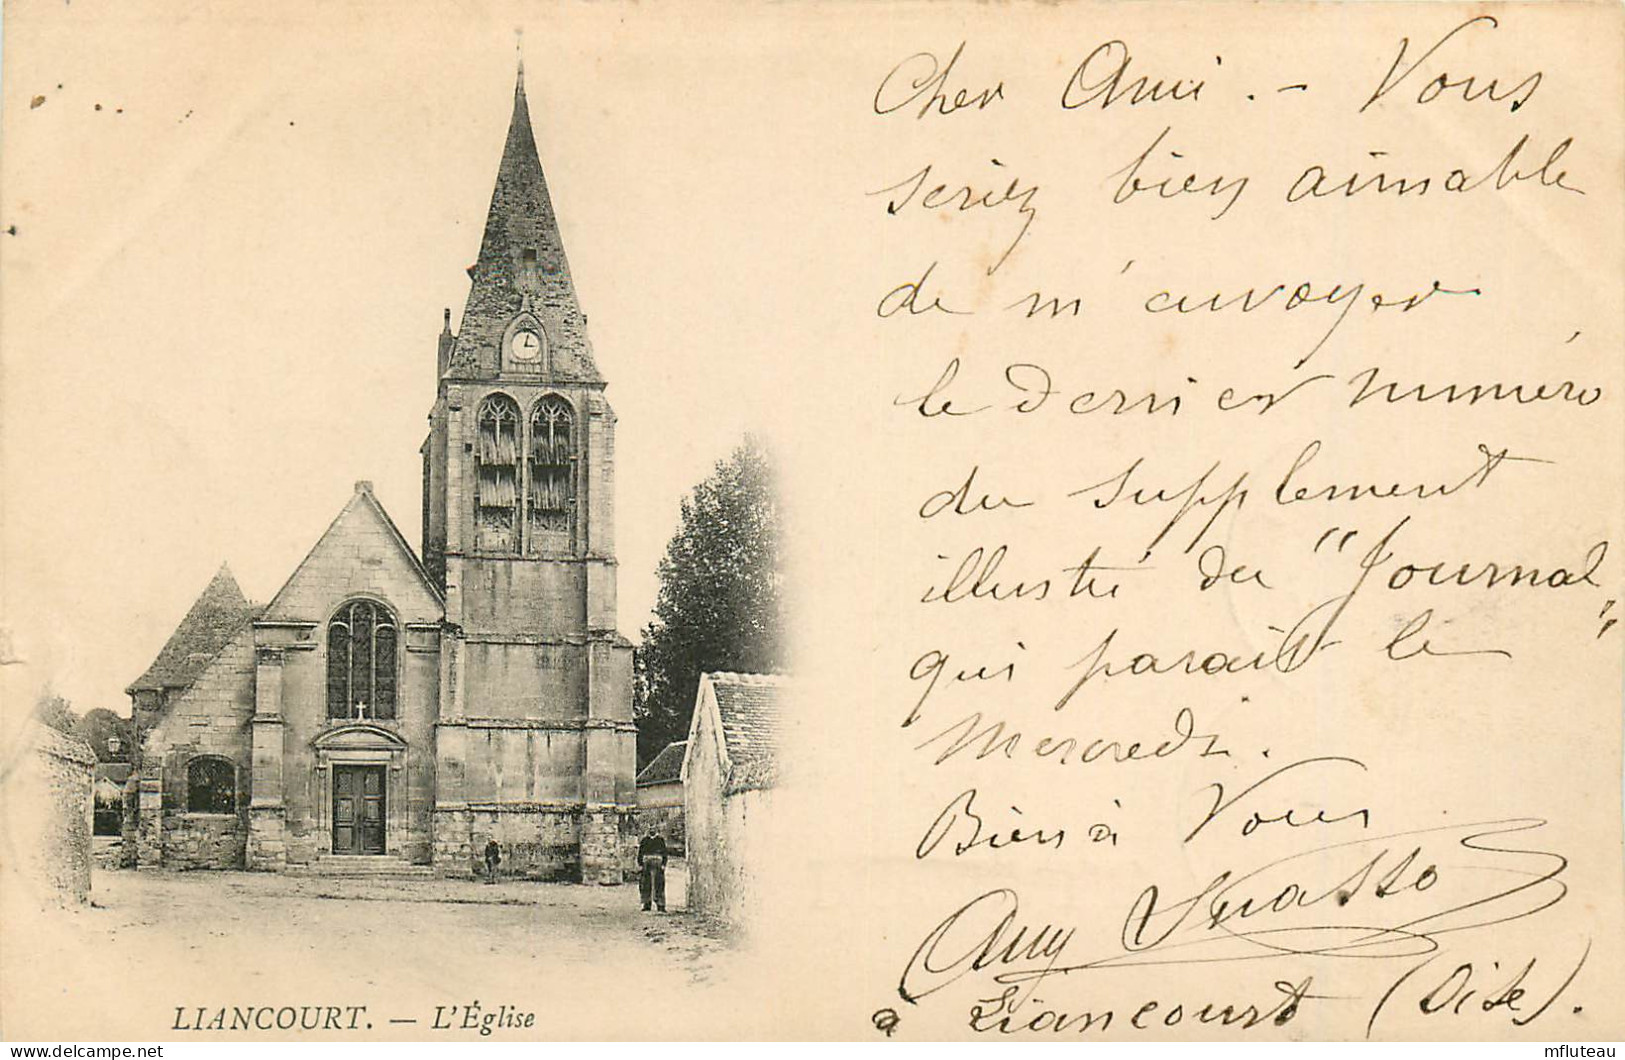 Cher Ami. - Vous
seriez bien aimable
de m'envoyer
le dernier numéro
du supplément
illustré du "Journal"
qui paraît le
Mercredi.
Bien à Vous
Aug
à Liancourt (Oise).
LIANCOURT. — L'Église
mfluteau